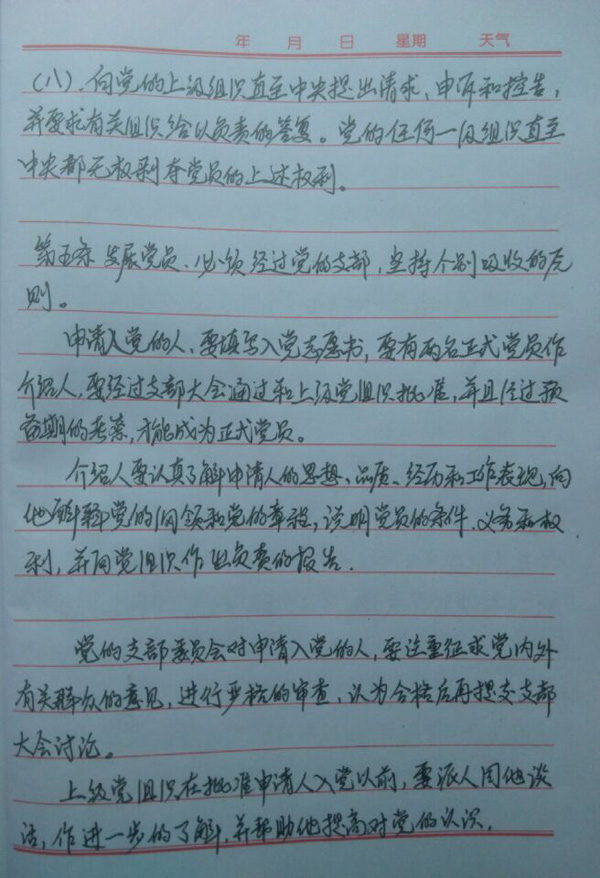 年 月 日 星期 天气
(八)、向党的上级组织直至中央提出请求、申诉和控告,
并要求有关组织给以负责的答复。党的任何一级组织直至
中央都无权剥夺党员的上述权利。
第五条 发展党员、必须经过党的支部,坚持个别吸收的原
则。
申请入党的人、要填写入党志愿书,要有两名正式党员作
介绍人,要经过支部大会通过和上级党组织批准,并且经过预
备期的考察,才能成为正式党员。
介绍人要认真了解申请人的思想、品质、经历和工作表现,向
他解释党的纲领和党的章程,说明党员的条件、义务和权
利,并向党组织作出负责的报告.
党的支部委员会对申请入党的人,要注重征求党内外
有关群众的意见,进行严格的审查、认为合格后再提交支部
大会讨论。
上级党组织在批准申请人入党以前,要派人同他谈
话,作进一步的了解,并帮助他提高对党的认识.